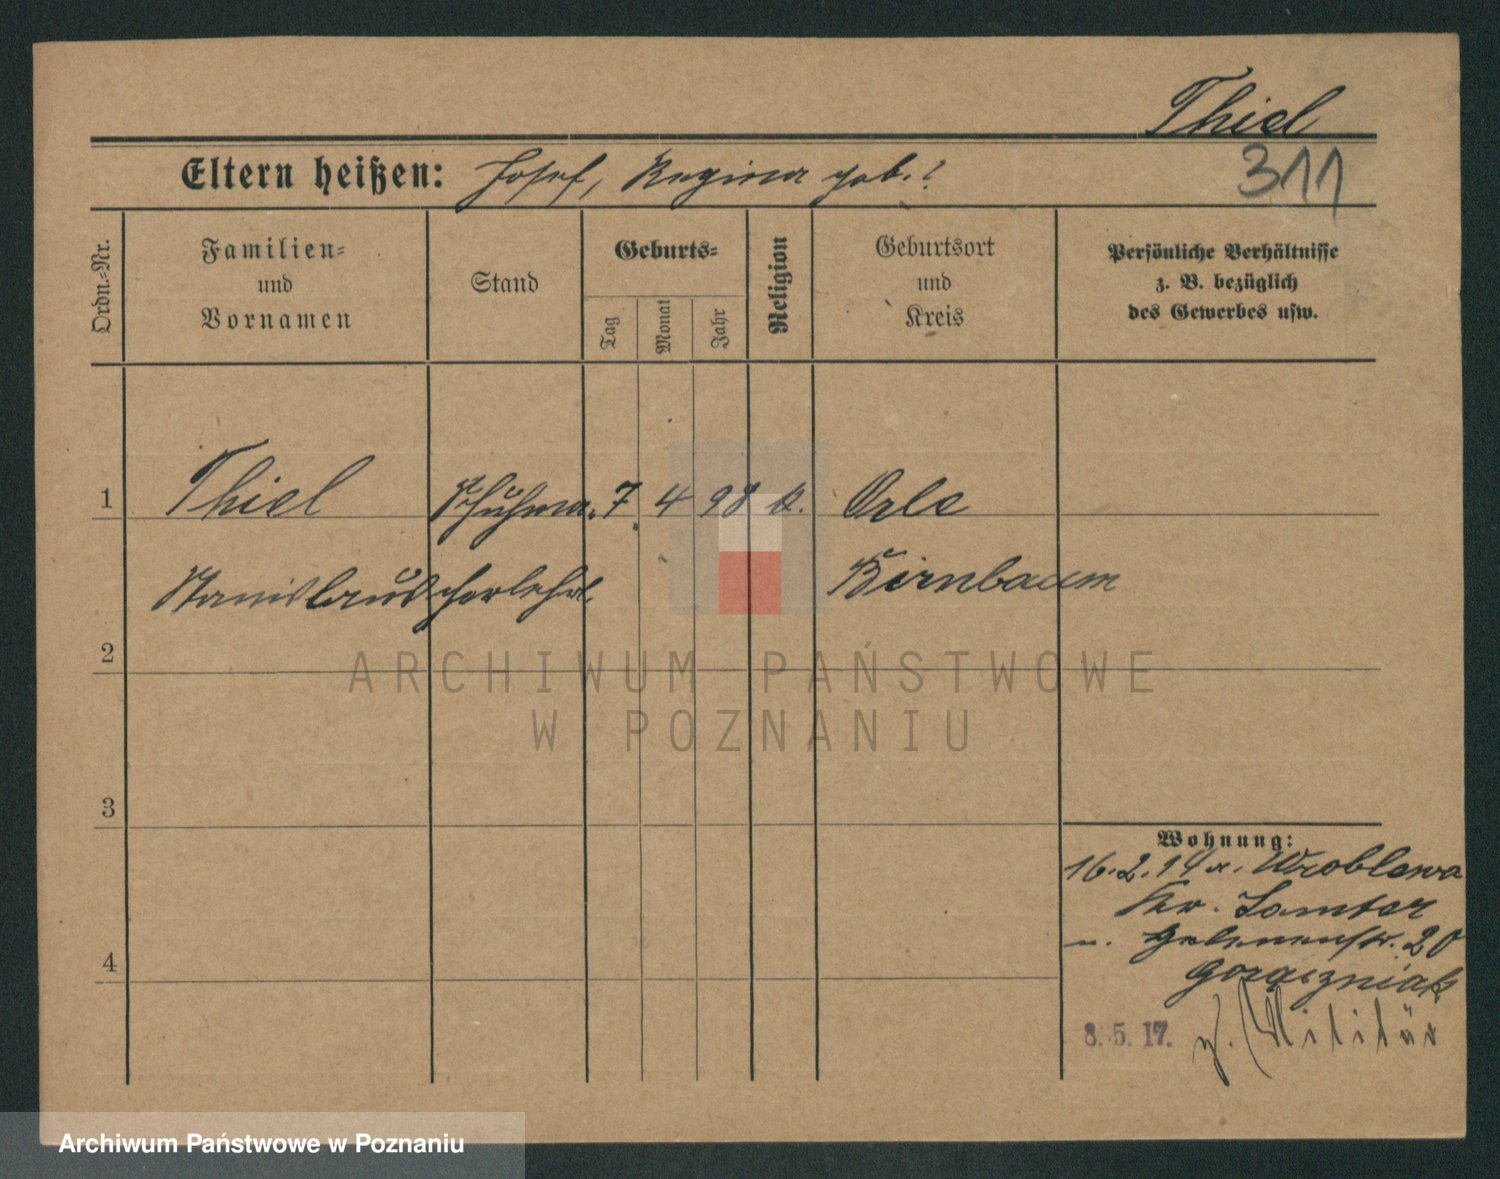 Thiel
Eltern heißen: Josef, Regina geb. ?
311
Ordn.-Nr.
Familien-
und
Vornamen
Stand
Geburts-
Tag
Monat
Jahr
Religion
Geburtsort
und
Kreis
Persönliche Verhältnisse
z. B. bezüglich
des Gewerbes usw.
1 Thiel Schuhma- 7 4 98 k. Orle
Stanislaus cherlehrl. Birnbaum
2
3
4
Wohnung:
16.2.14 v. Wroblewo
Kr. Samter
n. Helenenstr. 20
Gorączniak
8. 5. 17. z. Militär
ARCHIWUM PAŃSTWOWE
W POZNANIU
Archiwum Państwowe w Poznaniu